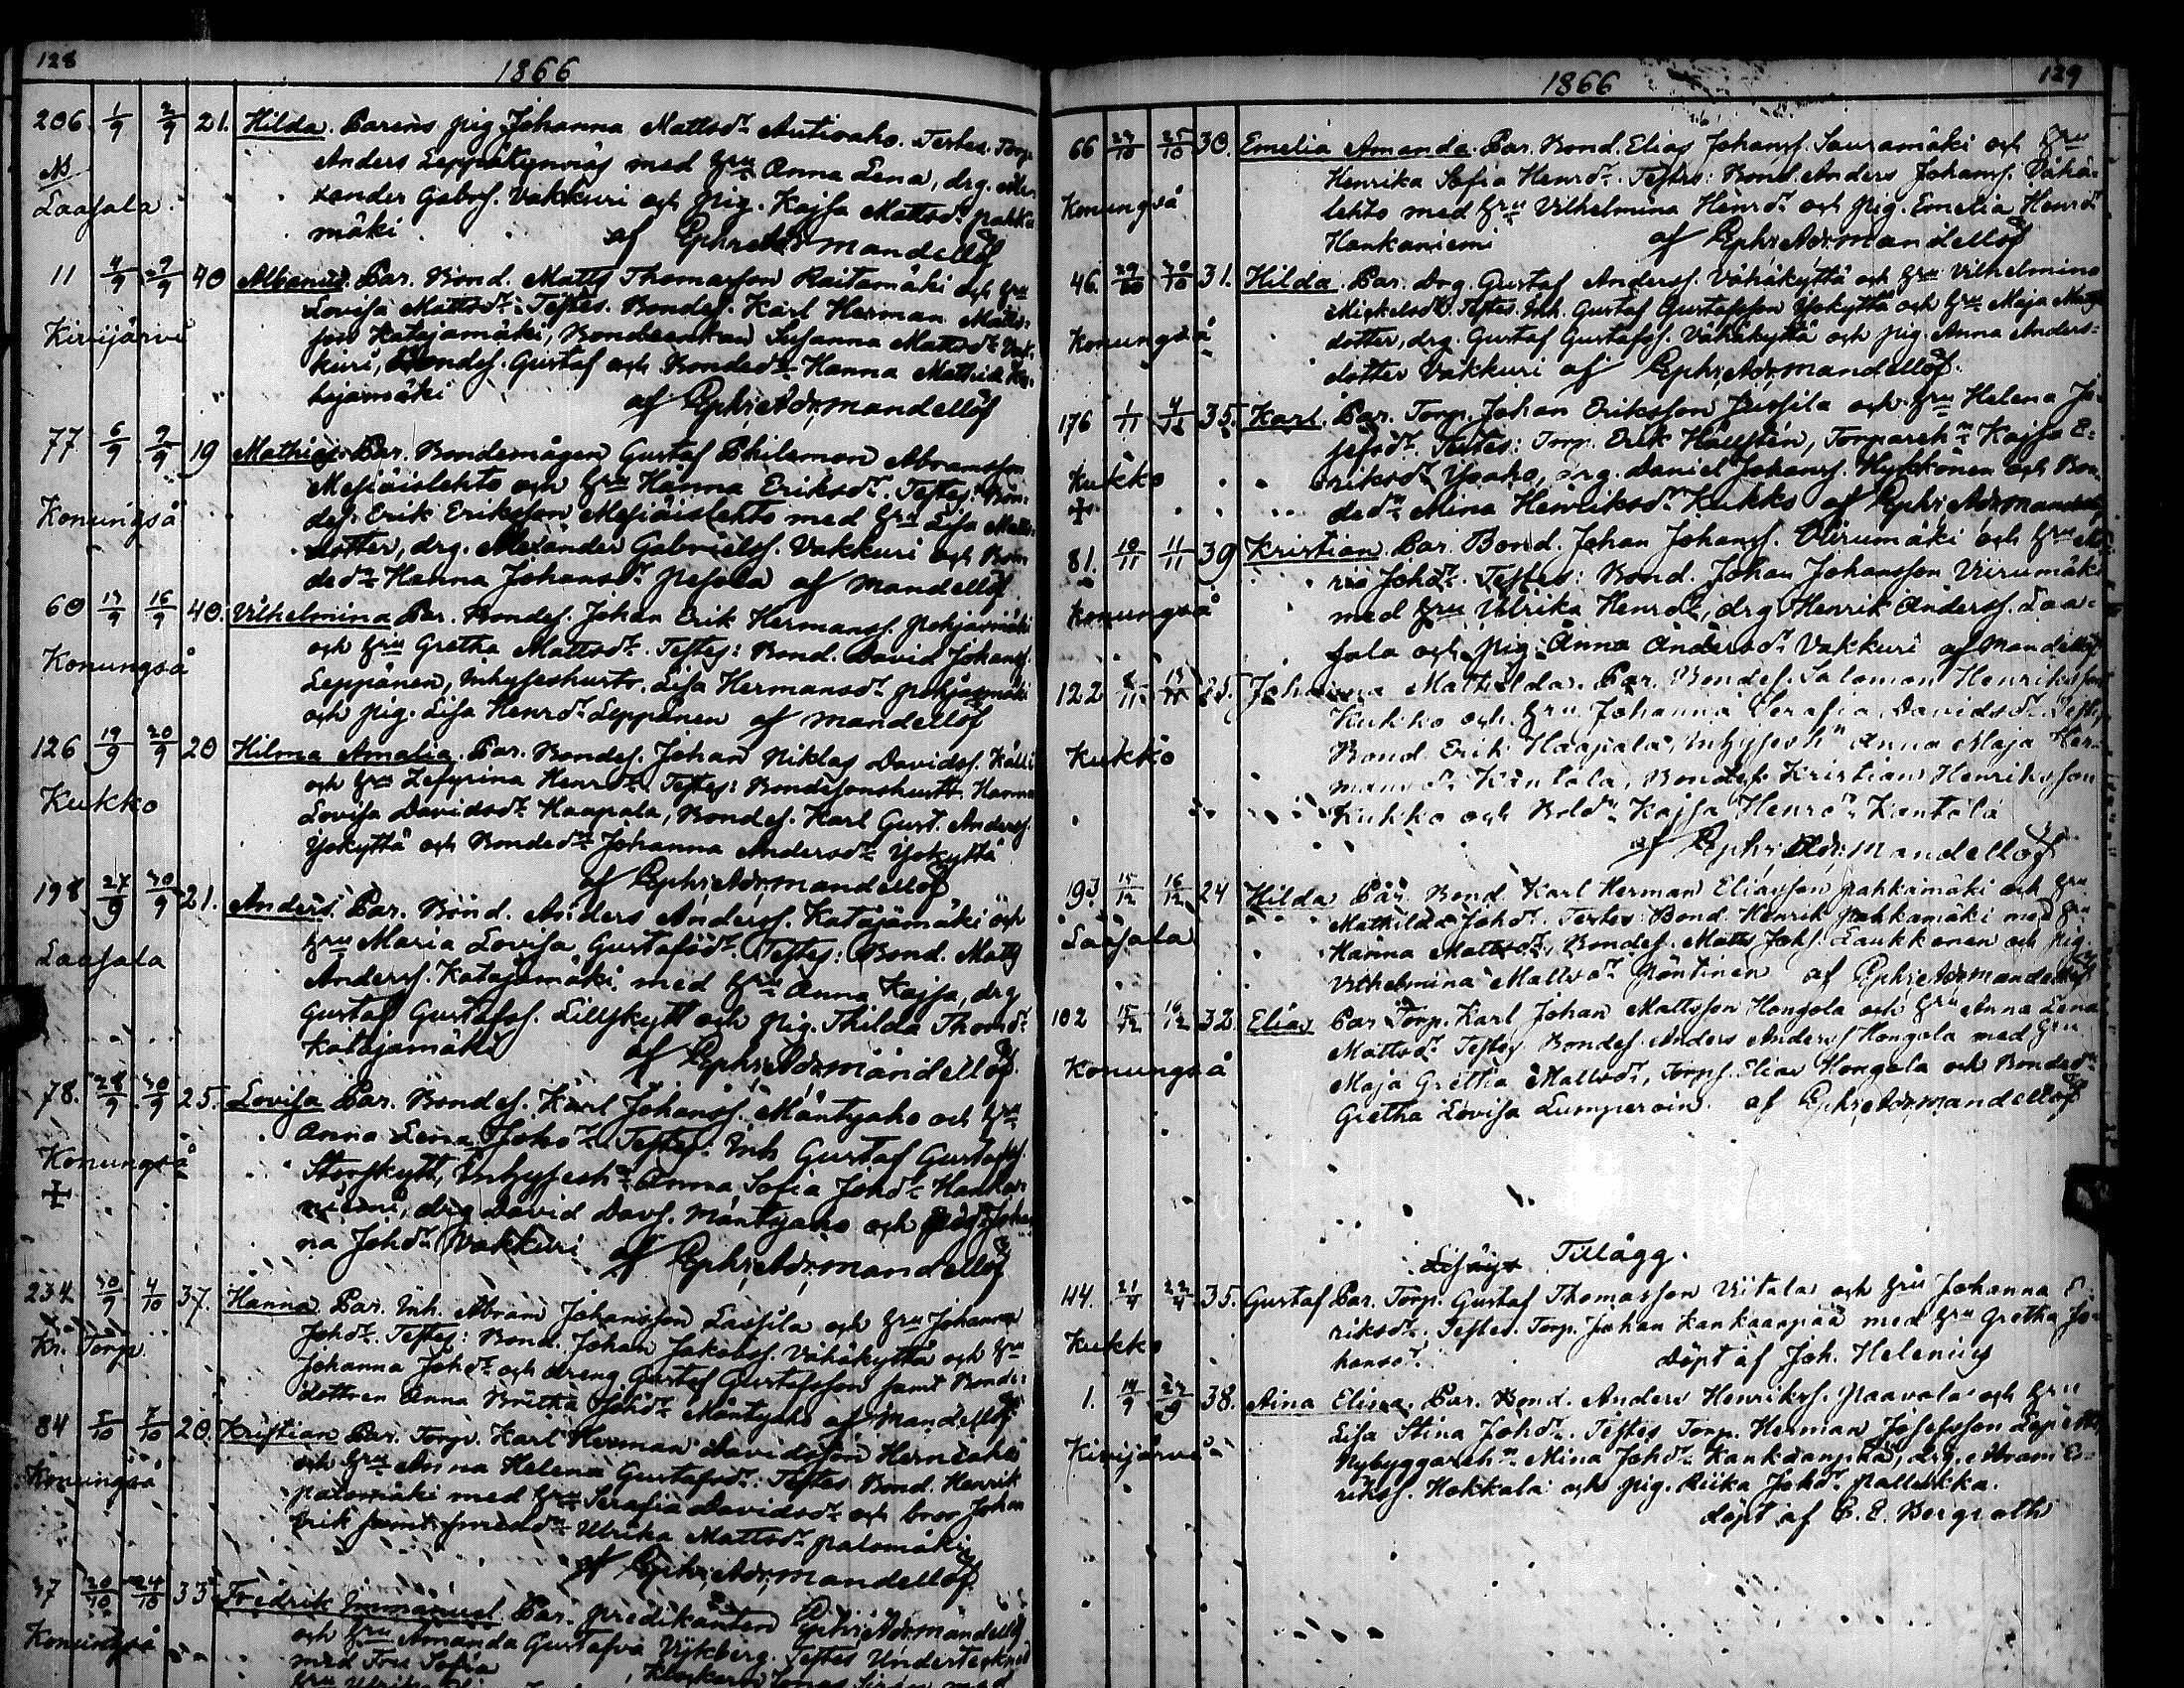 128
1866
206. 1/9 2/9 21. Hilda. Barens pig. Johanna Mattsdr Autioaho. Testes. Torp.
Anders Leppäkynnäs med hru Anna Lena, drg. Alex-
NB
Laasala
xander Gabrs. Vakkuri och pig. Kajsa Mattsdr Pahka-
mäki af Ephr. Adr. Mandellöf
11 4/9 9/9 40 Albanus. Par. Bond. Matts Thomasson Raitamäki och hru
Lovisa Mattsdr. Testes. Bondes. Karl Herman Matts-
Kivijärvi
son Katajamäki, Bondeenkan Susanna Mattsdr Vak-
kuri, Bondes. Gustaf och Bondedr Hanna Mathilda Ka-
tajamäki af Ephr. Adr. Mandellöf
77 6/9 9/9 19 Mathias. Par. Bondemågen Gustaf Philemon Abramsson
Mesiäislehto och hru Hanna Eriksdr. Testes: Bon-
Konungså
des. Erik Eriksson Mesiäislehto med hru Lisa Matts-
dotter, drg. Alexander Gabriels. Vakkuri och Bon-
dedr Hanna Johansdr Pesola af Mandellöf
60 13/9 16/9 40. Vilhelmina Par. Bondes. Johan Erik Hermanss. Pohjasmäki
och hru Gretha Mattsdr. Testes: Bond. David Johans.
Konungså
Leppänen, Inhyseshustr. Lisa Hermansdr Pohjasmäki
och pig. Lisa Henrdr Leppänen af Mandellöf
126 19/9 20/9 20 Hilma Amalia. Par. Bondes. Johan Niklas Davids. Källi
och hru Zefyrina Henrdr. Testes: Bondesonshustr. Hanna
Kukko
Lovisa Davidsdr Haapala, Bondes. Karl Gust. Anderss.
Yökyttä och Bondedr Johanna Andersdr Yökyttä
af Ephr. Adr. Mandellöf
198 27/9 30/9 21. Anders. Par. Bond. Anders Anderss. Katajamäki och
hru Maria Lovisa Gustafsdr. Testes: Bond. Matts
Laasala
Anderss. Katajamäki med hru Anna Kajsa, drg
Gustaf Gustafss. Lillskytt och pig. Thilda Thomdr
Katajamäki af Ephr. Adr. Mandellöf
78. 28/9 30/9 25. Lovisa Par. Bondes. Karl Johanss. Mäntyaho och hru
Anna Lena Johdr. Testes. Inh Gustaf Gustafss.
Konungså
Storskytt, Inhysesh. Anna Sofia Johdr Hanka-
niemi, drg David Davs. Mäntyaho och pig. Johan-
na Johdr Vakkuri af Ephr. Adr. Mandellöf
234. 30/9 4/10 37. Hanna. Par. Inh. Abram Johansson Lassila och hru Johanna
Kr. Torp
Johdr. Testes: Bond. Johan Jakobss. Vähäkyttä och hru
Johanna Johdr och dreng Gustaf Gustafsson samt Bonde-
dottren Anna Britha Johdr Mäntyaho af Mandellöf
84 5/10 7/10 20. Kristian Par. Torp. Karl Herman Davidsson Herneaho
Konungså
och hru Anna Helena Gustafsdr: Testes Bond. Henrik
Palomäki med hru Serafia Davidsdr och bror Johan
Erik samt Ulrika Mattsdr Palomäki
af Ephr. Adr. Mandellöf
37 20/10 24/10 33 Fredrik Immanuel Par. predikanten Ephr. Adr. Mandellöf
Konungså
och hru Amanda Gustafva Vijkberg. Testes Undertecknad
med Fru Sofia
129
1866
66 23/10 25/10 30. Emelia Amanda. Par. Bond. Elias Johanss. Sauramäki och hru
Henrika Sofia Henrdr. Testes: Bond. Anders Johanss. Vähä-
Konungså
lehto med hru Vilhelmina Henrdr och pig. Emelia Henrdr
Hankaniemi af Ephr. Adr. Mandellöf
46. 29/10 30/10 31. Hilda. Par. Drg. Gustaf Anderss. Vähäkyttä och hru Vilhelmina
Mickelsdr. Testes. Inh. Gustaf Gustafsson Yökyttä och hru Maja Matts
Konungså
dotter, drg. Gustaf Gustafss. Vähäkyttä och pig. Anna Anders-
dotter Vakkuri af Ephr. Adr. Mandellöf.
176 1/11 4/11 35. Karl. Par. Torp. Johan Eriksson Jussila och hru Helena Jo-
sefsdr. Testes: Torp. Erik Hällstén, Torpareh. Kajsa E-
Kukko
riksdr Yöaho, drg. Daniel Johanss. Hykkönen och Bon-
dedr Mina Henriksdr Kukko af Ephr. Adr. Mandellöf
81. 10/11 11/11 39 Kristian. Par. Bond. Johan Johanss. Virumäki och hru Ma-
ria Johdr. Testes: Bond. Johan Johansson Virumäki
Konungså
med hru Ulrika Henrdr, drg Henrik Anderss. Laa-
sala och pig. Anna Andersdr Vakkuri af Mandellöf
122 Johanna Mathilda. Par. Bondes. Salomon Henriksson
Kukko och hru Johanna Serafia Davidsdr. Testes
Kukko
Bond Erik Haapala, Inhysesh. Anna Maja Her-
mansdr Kantola, Bondes. Kristian Henriksson
Kukko och Boldr Kajsa Henrdr Kantola
af Ephr. Adr. Mandellöf
193 15/12 16/12 24 Hilda Par. Bond. Karl Herman Eliasson Pahkamäki och hru
Mathilda Johdr. Testes: Bond. Henrik Pahkamäki med hru
Laasala
Hanna Mattsdr, Bondes. Matts Johs. Laukkonen och pig.
Vilhelmina Mattsdr Pöntinen af Ephr. Adr. Mandellöf
102 15/12 16/12 32. Elias Par Torp. Karl Johan Mattsson Hongola och hru Anna Lena
Mattsdr Testes Bondes. Anders Anderss Hongola med hru
Konungså
Maja Gretha Mattsdr, Torps. Elias Hongola och Bondedr
Gretha Lovisa Lumperoin. af Ephr. Adr. Mandellöf
Tillägg.
114. 21/4 22/4 35. Gustaf Par. Torp. Gustaf Thomasson Viitala och hru Johanna E-
riksdr. Testes. Torp. Johan Kankaanpää med hru Gretha Jo-
Kukko
hansdr. Döpt af Joh. Helenius
1. 14/9 23/9 38. Aina Elina. Par. Bond. Anders Henrikss. Paavola och hru
Lisa Stina Johdr. Testes Torp. Herman Josefsson
Kivijärvi
Nybyggareh. Mina Johdr Kankaanpää, drg. Abram E-
rikss. Hokkala och pig. Riika Johdr. Palturikka.
döpt af G. E. Bergroth